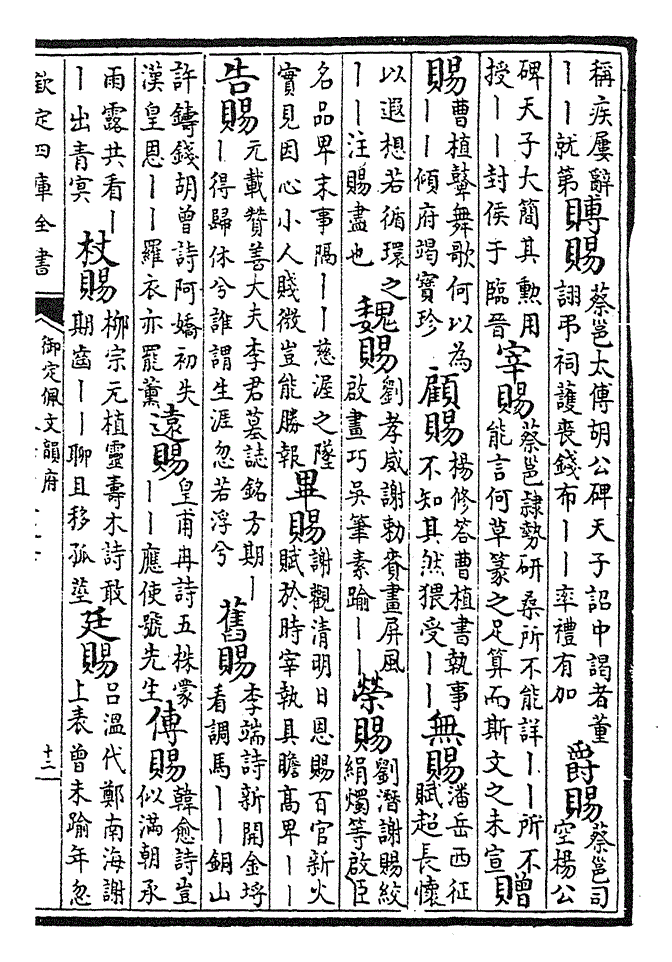 稱疾屢辭丨丨就第賻賜蔡邕太傅胡公碑天子詔中謁者董詡弔祠護喪錢布丨丨率禮有加爵賜蔡邕司空楊公
碑天子大簡其勲用授丨丨封侯于臨晉宰賜蔡邕隷勢研桑所不能詳丨丨所不能言何草篆之足算而斯文之未宣贈
賜曹植鼙舞歌何以為丨丨傾府竭寳珍顧賜楊修答曹植書執事不知其然猥受丨丨無賜潘岳西征賦超長懷
以遐想若循環之丨丨注賜盡也魏賜劉孝威謝勅賚畫屏風啟畫巧吳筆素踰丨丨榮賜劉潛謝賜絞絹燭等啟臣
名品卑末事隔丨丨慈渥之墜實見因心小人賤微豈能勝報異賜謝觀清明日恩賜百官新火賦於時宰執具瞻高卑丨丨
告賜元載贊善大夫李君墓誌銘方期丨丨得歸休兮誰謂生涯忽若浮兮舊賜李端詩新開金埒看調馬丨丨銅山
許鑄錢胡曾詩阿嬌初失漢皇恩丨丨羅衣亦罷薰遠賜皇甫冉詩五株蒙丨丨應使號先生傳賜韓愈詩豈似滿朝承
雨露共看丨丨出青冥杖賜柳宗元植靈壽木詩敢期齒丨丨聊且移孤莖廷賜吕溫代鄭南海謝上表曾未踰年忽
欽定四庫全書
御定佩文韻府
十三